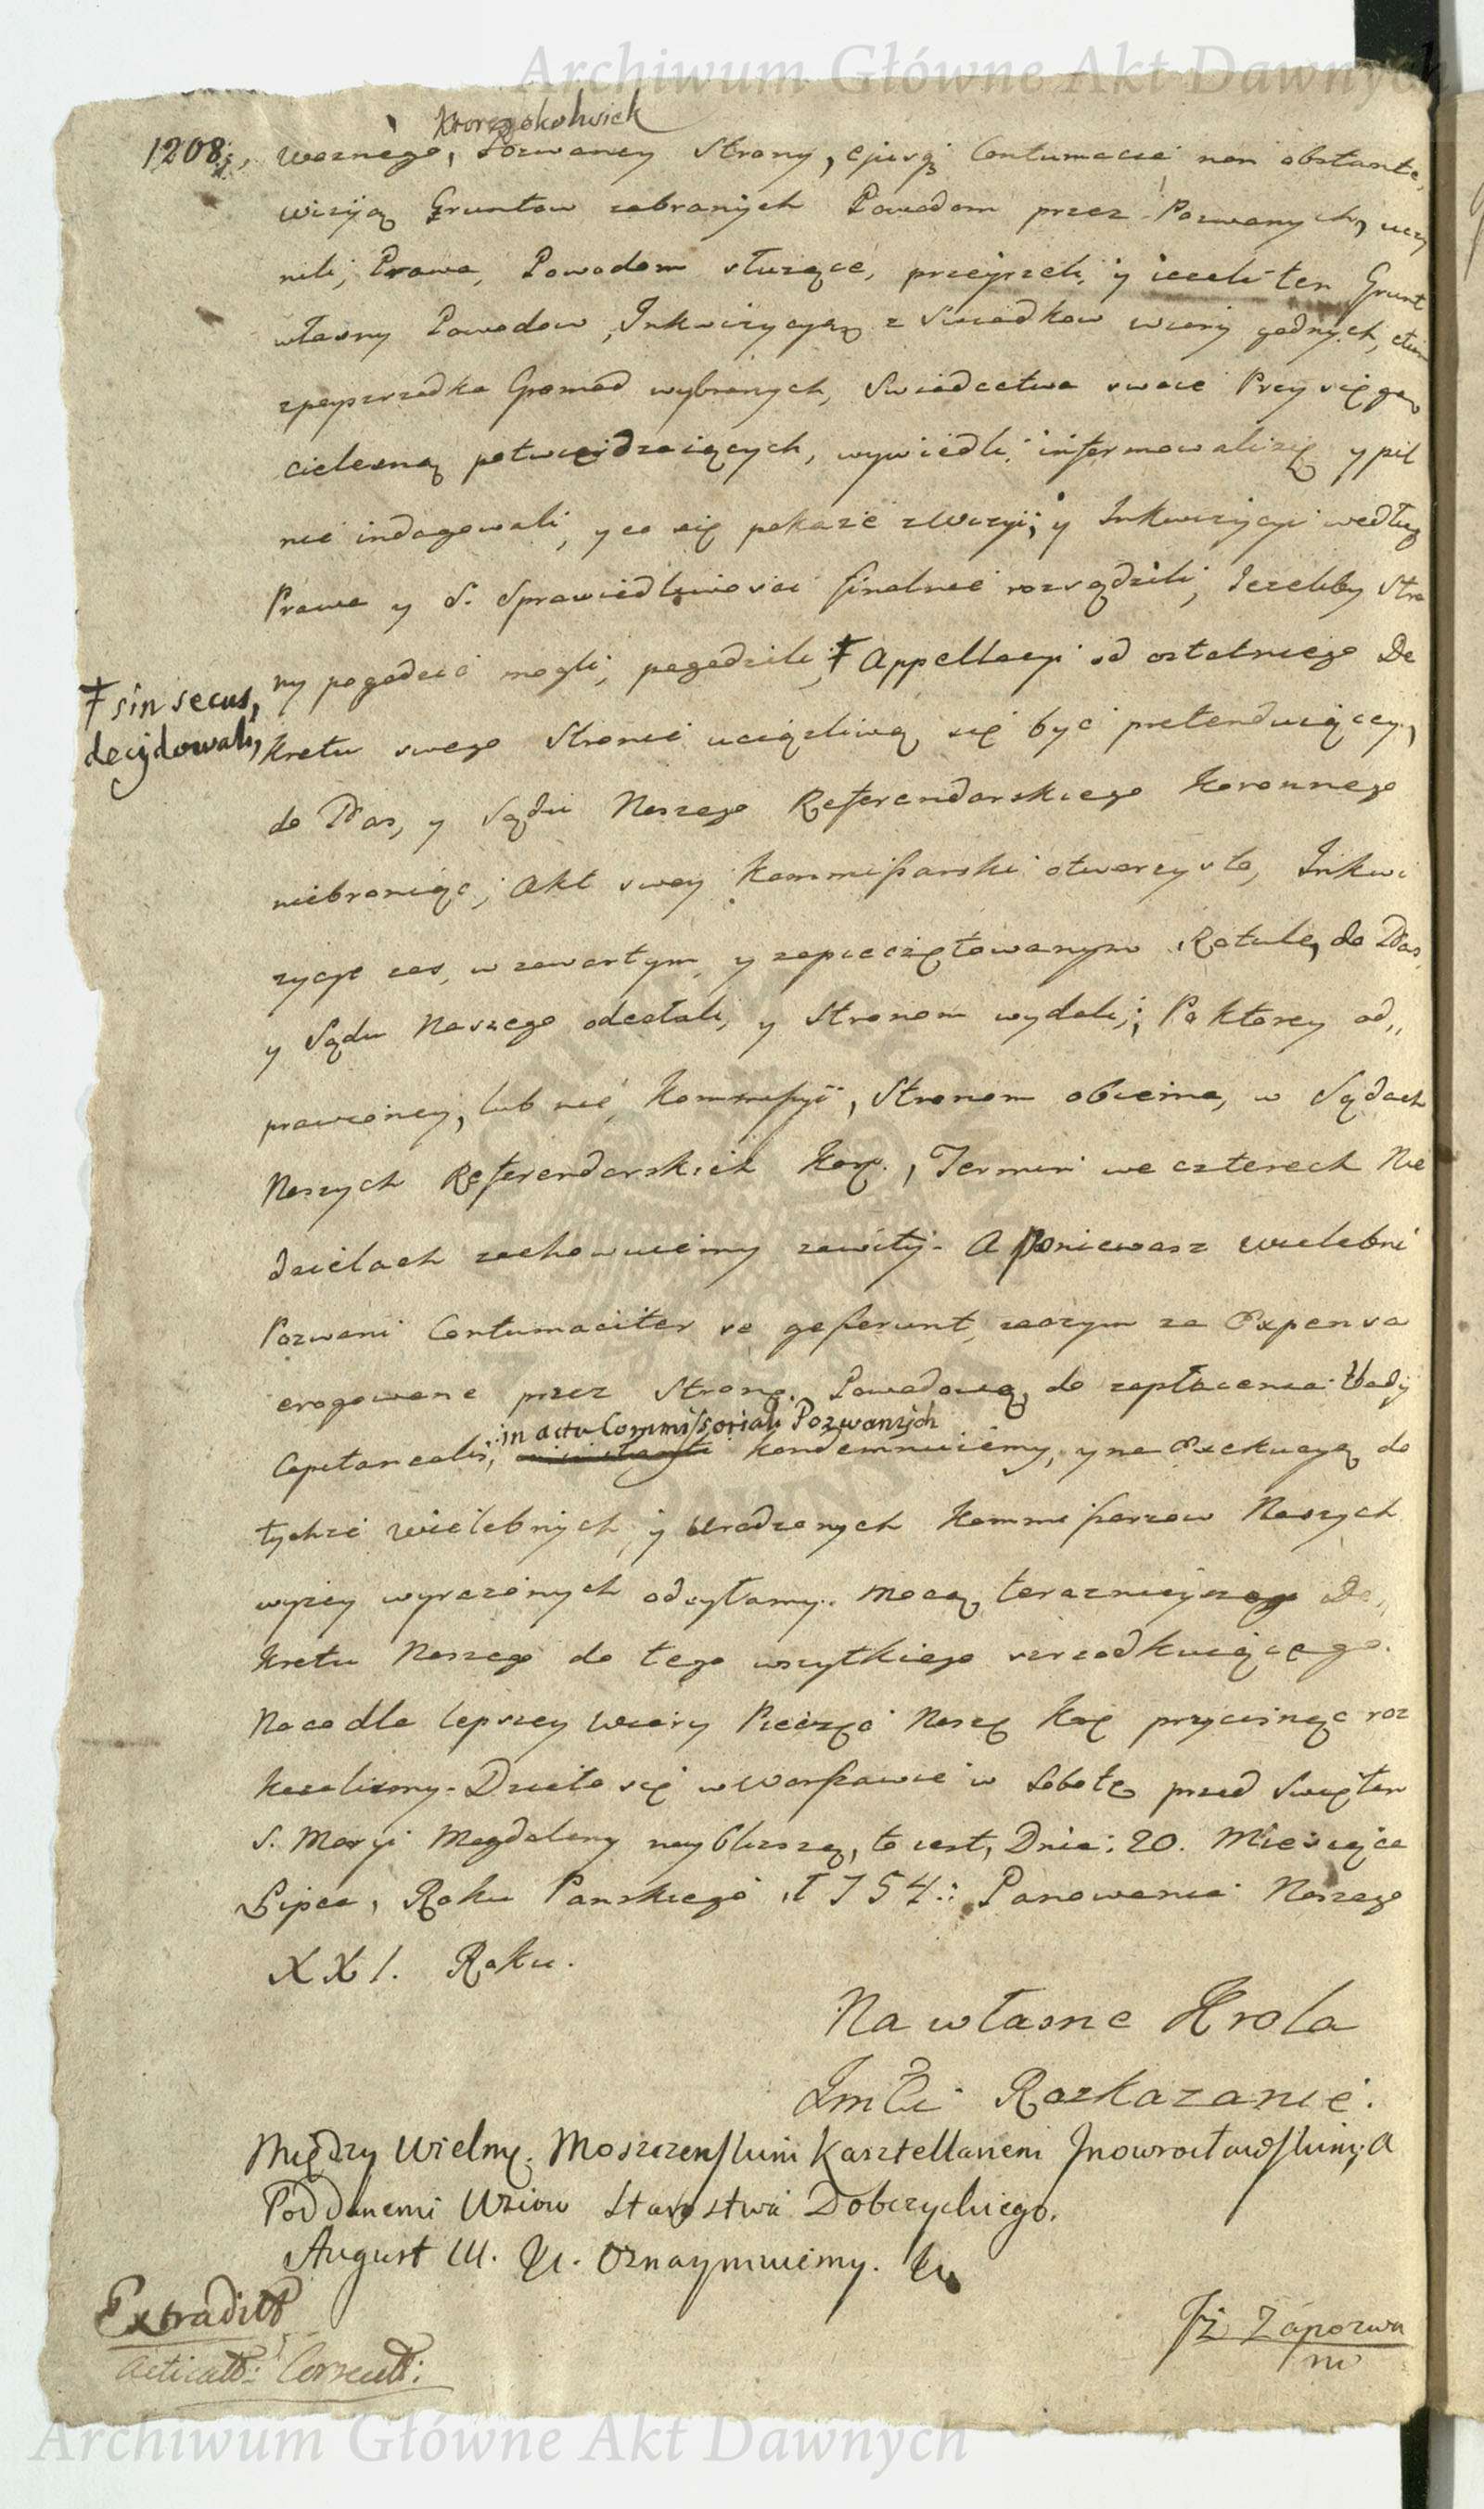 Archiwum Główne Akt Dawnych
Ktoregokolwiek
1208. woznego, Pozwaney Strony, ejusq Contumacia non obstante,
wizyią Gruntow zabranych Powodom przez Pozwanych, uczy
nili, Prawa, Powodom służące, przeyrzeli, y ieżeli ten Grunt
własny Powodow, Inkwizycyą z Swiadkow wiary godnych, etiam
zpoyszrzodka Gromad wybranych, Swiadectwa swoie Przysięgą
cielesną potwierdzaiących, wywiedli, informowali się y pil
nie indagowali, y co się pokaże z Wizyi, y Inkwizycyi według
Prawa y S. Sprawiedliwosci finalnie rozsądzili, Jezeliby Stro
ny pogodzić mogli, pogodzili, ‡ Appellacyi od ostatniego De
‡ sin secus,
decydowali,
kretu swego Stronie uciązliwą się być pretenduiącey,
do Nas, y Sądu Naszego Referendarskiego Koronnego
niebroniąc; Akt swoy Kommissarski otworzysto, Inkwi
zycye zas, w zawartym y zapieczętowanym Rotule, do Nas,
y Sądu Naszego odesłali, y Stronom wydali; Po ktorey od„
prawioney, lub nie Kommissyi, Stronom obiema, w Sądach
Naszych Referendarskich Kor., Termin we czterech Nie
dzielach zachowuiemy zawity. A Poniewasz Wielebni
Pozwani Contumaciter se gesserunt, zaczym za Expensa
erogowane przez Stronę Powodową do zapłacenia
in actu Commissoriali Pozwanych
Capitanealis, kondemnuiemy, y na Exekucyą do
tychże Wielebnych y Urodzonych Kommissarzow Naszych
wyzey wyrazonych odsyłamy. Mocą teraznieyszego De„
kretu Naszego do tego wszytkiego szrzodkuiącego.
Na co dla lepszey Wiary Pieczęć Naszę Kor. przycisnąc roz
kazalismy. Działo się w Warszawie w Sobotę przed Swiętem
S. Maryi Magdaleny naybliszszą, to iest, Dnia: 20. Miesiąca
Lipca, Roku Panskiego 1754. Panowania Naszego
XXI. Roku.
Na własne Krola
Jmci Rozkazanie.
Między Wielm. Moszczenskim Kasztellanem Jnowrocławskim, a
Poddanemi Wsiow Starostwa Dobczyckiego.
August III. &c. Oznaymuiemy.
Extradit
Acticat: Correct:
Już Zapozwa
ni
Archiwum Główne Akt Dawnych